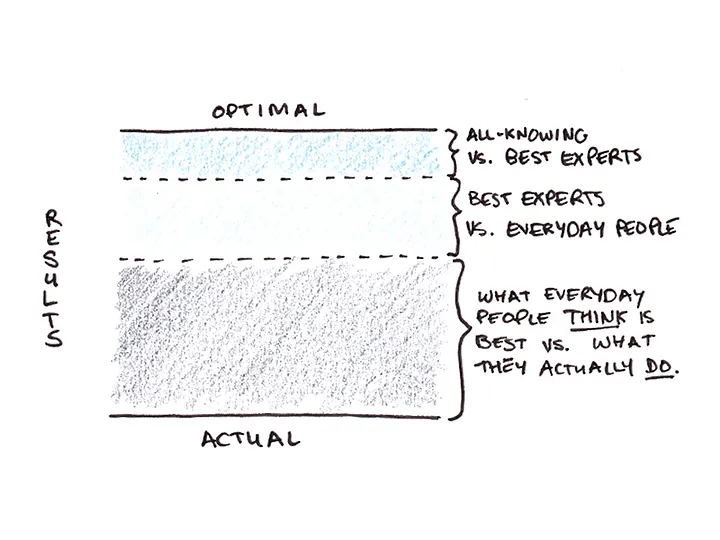 OPTIMAL
ALL-KNOWING
VS. BEST EXPERTS
BEST EXPERTS
VS. EVERYDAY PEOPLE
RESULTS
WHAT EVERYDAY
PEOPLE THINK IS
BEST VS. WHAT
THEY ACTUALLY DO.
ACTUAL